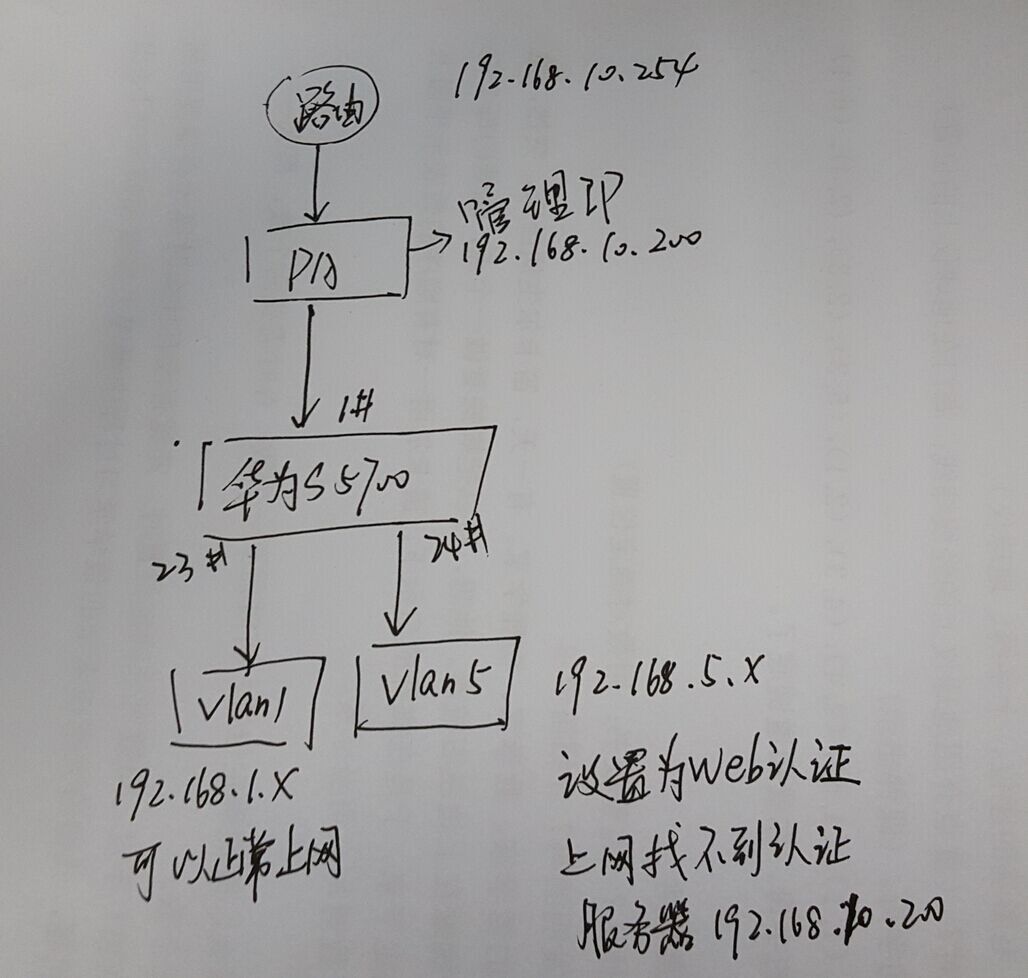 路由
192.168.10.254
管理IP
192.168.10.200
PA
1#
华为S5700
23#
24#
vlan1
vlan5
192.168.5.X
192.168.1.X
可以正常上网
设置为Web认证
上网找不到认证
服务器 192.168.10.200